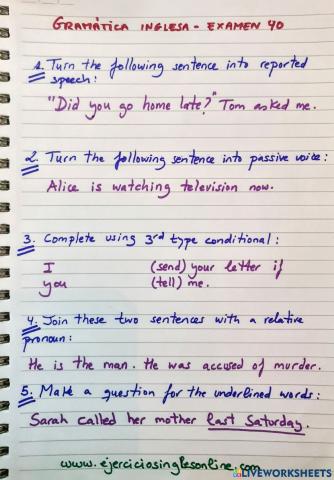 GRAMÁTICA INGLESA - EXAMEN 40
1. Turn the following sentence into reported
speech:
"Did you go home late?" Tom asked me.
2. Turn the following sentence into passive voice:
Alice is watching television now.
3. Complete using 3rd type conditional:
I (send) your letter if
you (tell) me.
4. Join these two sentences with a relative
pronoun:
He is the man. He was accused of murder.
5. Make a question for the underlined words:
Sarah called her mother last Saturday.
www.ejerciciosinglesonline.com
LIVEWORKSHEETS